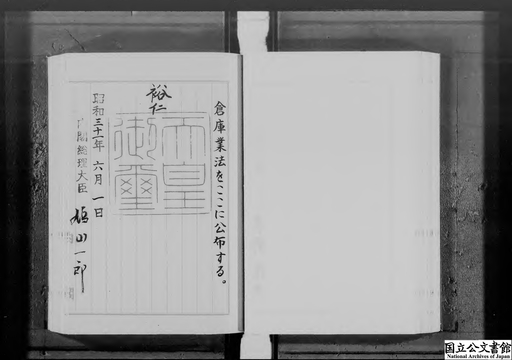 倉庫業法をここに公布する。
裕仁
天皇
御璽
昭和三十一年六月一日
内閣総理大臣 鳩山一郎
国立公文書館
National Archives of Japan